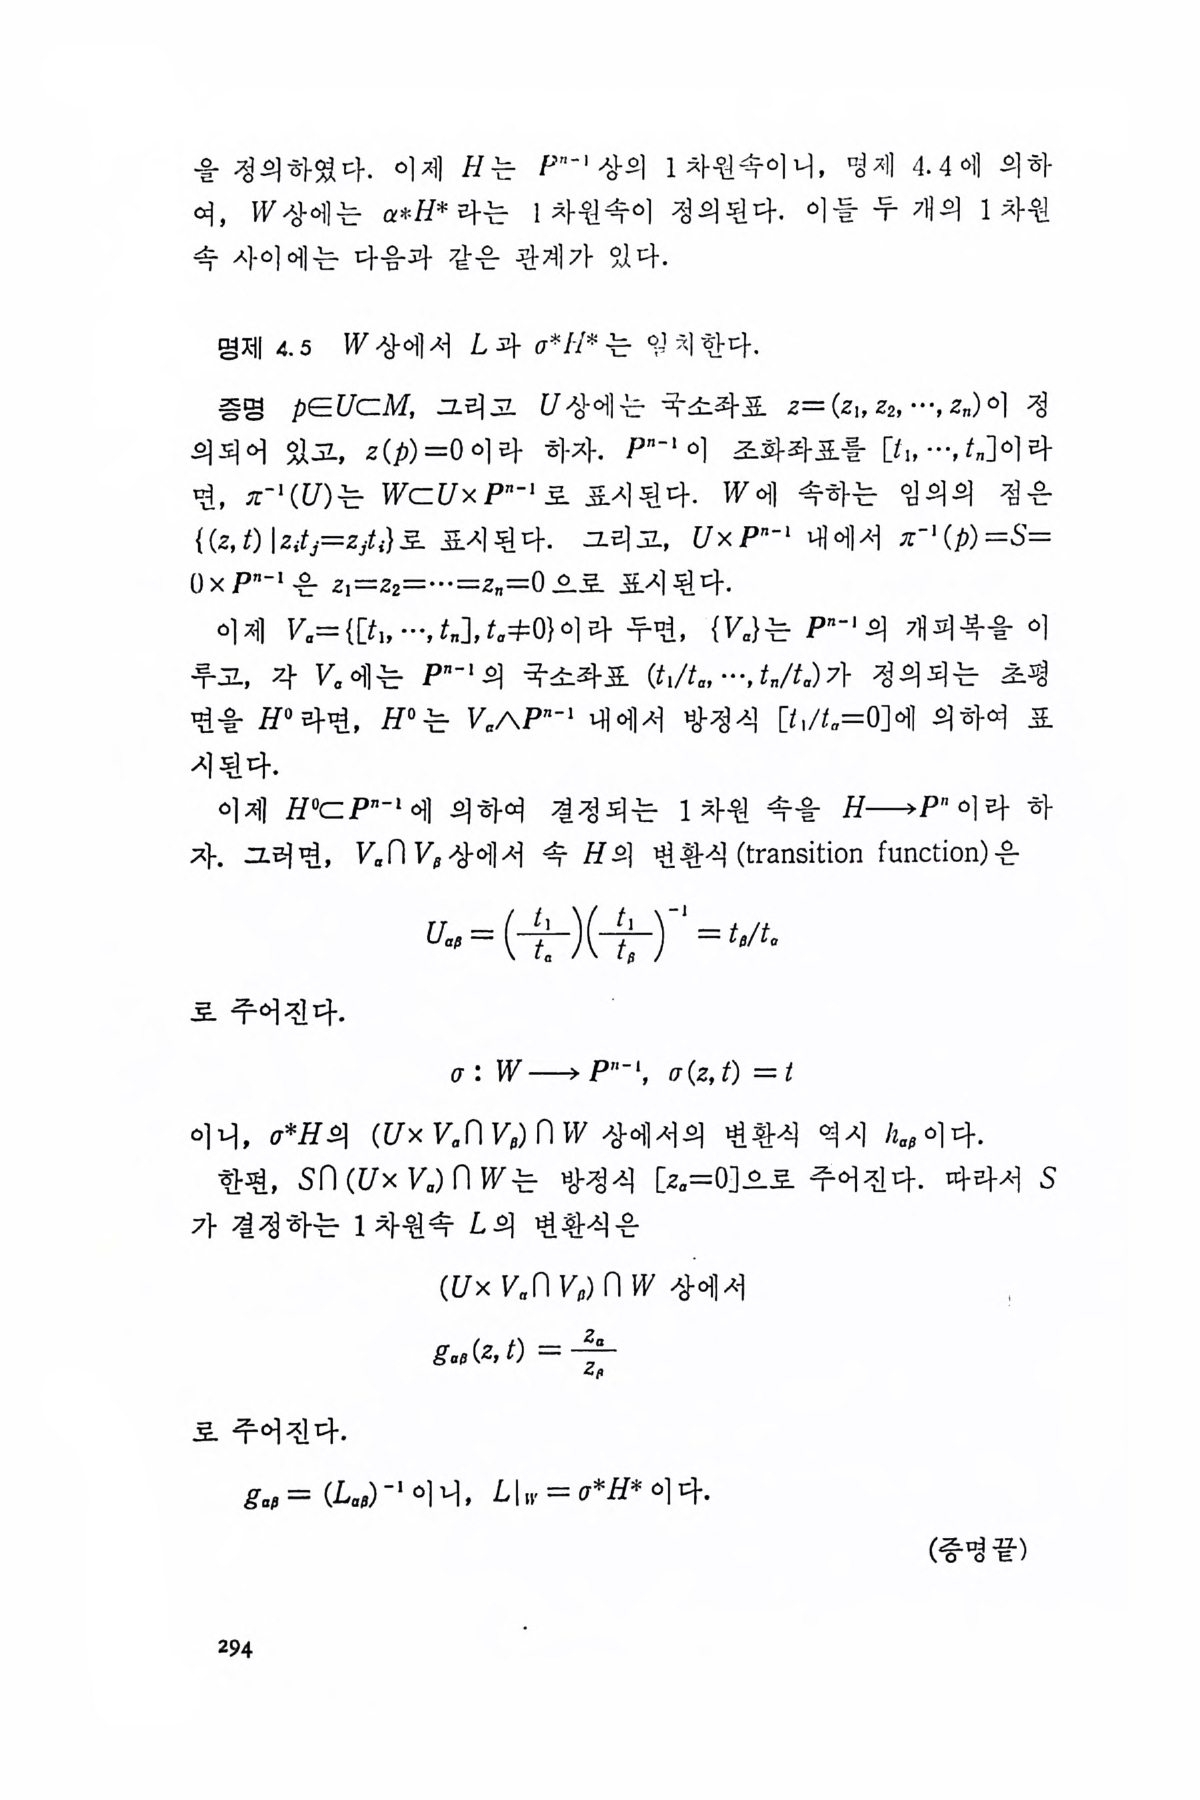 을 정의하였다. 이제 H는 Pⁿ⁻¹상의 1차원속이니, 명제 4.4에 의하
여, W상에는 α*H*라는 1차원속이 정의된다. 이들 두 개의 1차원
속 사이에는 다음과 같은 관계가 있다.
명제 4.5 W상에서 L과 σ*H*는 일치한다.
증명 p∈U⊂M, 그리고 U상에는 국소좌표 z=(z₁, z₂, ⋯, zₙ)이 정
의되어 있고, z(p)=0이라 하자. Pⁿ⁻¹이 조화좌표를 [t₁, ⋯, tₙ]이라
면, π⁻¹(U)는 W⊂U×Pⁿ⁻¹로 표시된다. W에 속하는 임의의 점은
{(z, t)|zᵢtⱼ=zⱼtᵢ}로 표시된다. 그리고, U×Pⁿ⁻¹ 내에서 π⁻¹(p)=S=
0×Pⁿ⁻¹은 z₁=z₂=⋯=zₙ=0으로 표시된다.
이제 V_α={[t₁, ⋯, tₙ], t_α≠0}이라 두면, {V_α}는 Pⁿ⁻¹의 개피복을 이
루고, 각 V_α에는 Pⁿ⁻¹의 국소좌표 (t₁/t_α, ⋯, tₙ/t_α)가 정의되는 초평
면을 H⁰라면, H⁰는 V_α∧Pⁿ⁻¹ 내에서 방정식 [t₁/t_α=0]에 의하여 표
시된다.
이제 H⁰⊂Pⁿ⁻¹에 의하여 결정되는 1차원 속을 H⟶Pⁿ이라 하
자. 그러면, V_α∩V_β상에서 속 H의 변환식(transition function)은
U_αβ = (t₁/t_α)(t₁/t_β)⁻¹ = t_β/t_α
로 주어진다.
σ : W ⟶ Pⁿ⁻¹, σ(z, t) = t
이니, σ*H의 (U×V_α∩V_β)∩W 상에서의 변환식 역시 h_αβ이다.
한편, S∩(U×V_α)∩W는 방정식 [z_α=0]으로 주어진다. 따라서 S
가 결정하는 1차원속 L의 변환식은
(U×V_α∩V_β)∩W 상에서
g_αβ(z, t) = z_α/z_β
로 주어진다.
g_αβ = (L_αβ)⁻¹이니, L|_W = σ*H*이다.
(증명끝)
294